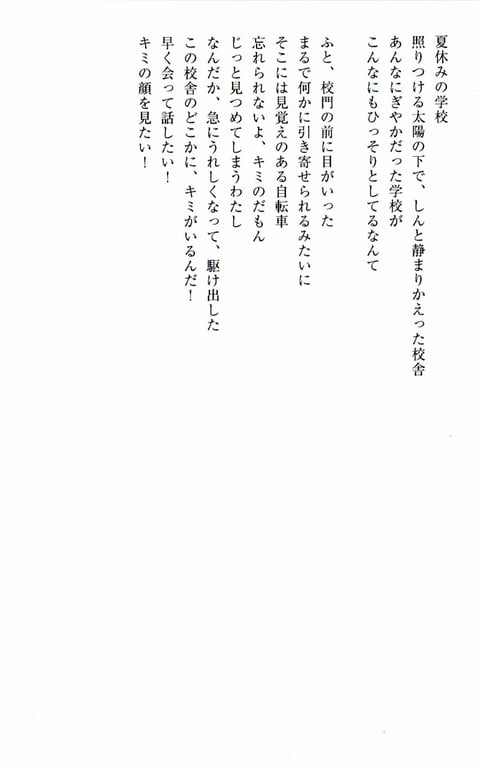 夏休みの学校
照りつける太陽の下で、しんと静まりかえった校舎
あんなにぎやかだった学校が
こんなにもひっそりとしてるなんて
ふと、校門の前に目がいった
まるで何かに引き寄せられるみたいに
そこには見覚えのある自転車
忘れられないよ、キミのだもん
じっと見つめてしまうわたし
なんだか、急にうれしくなって、駆け出した
この校舎のどこかに、キミがいるんだ！
早く会って話したい！
キミの顔を見たい！